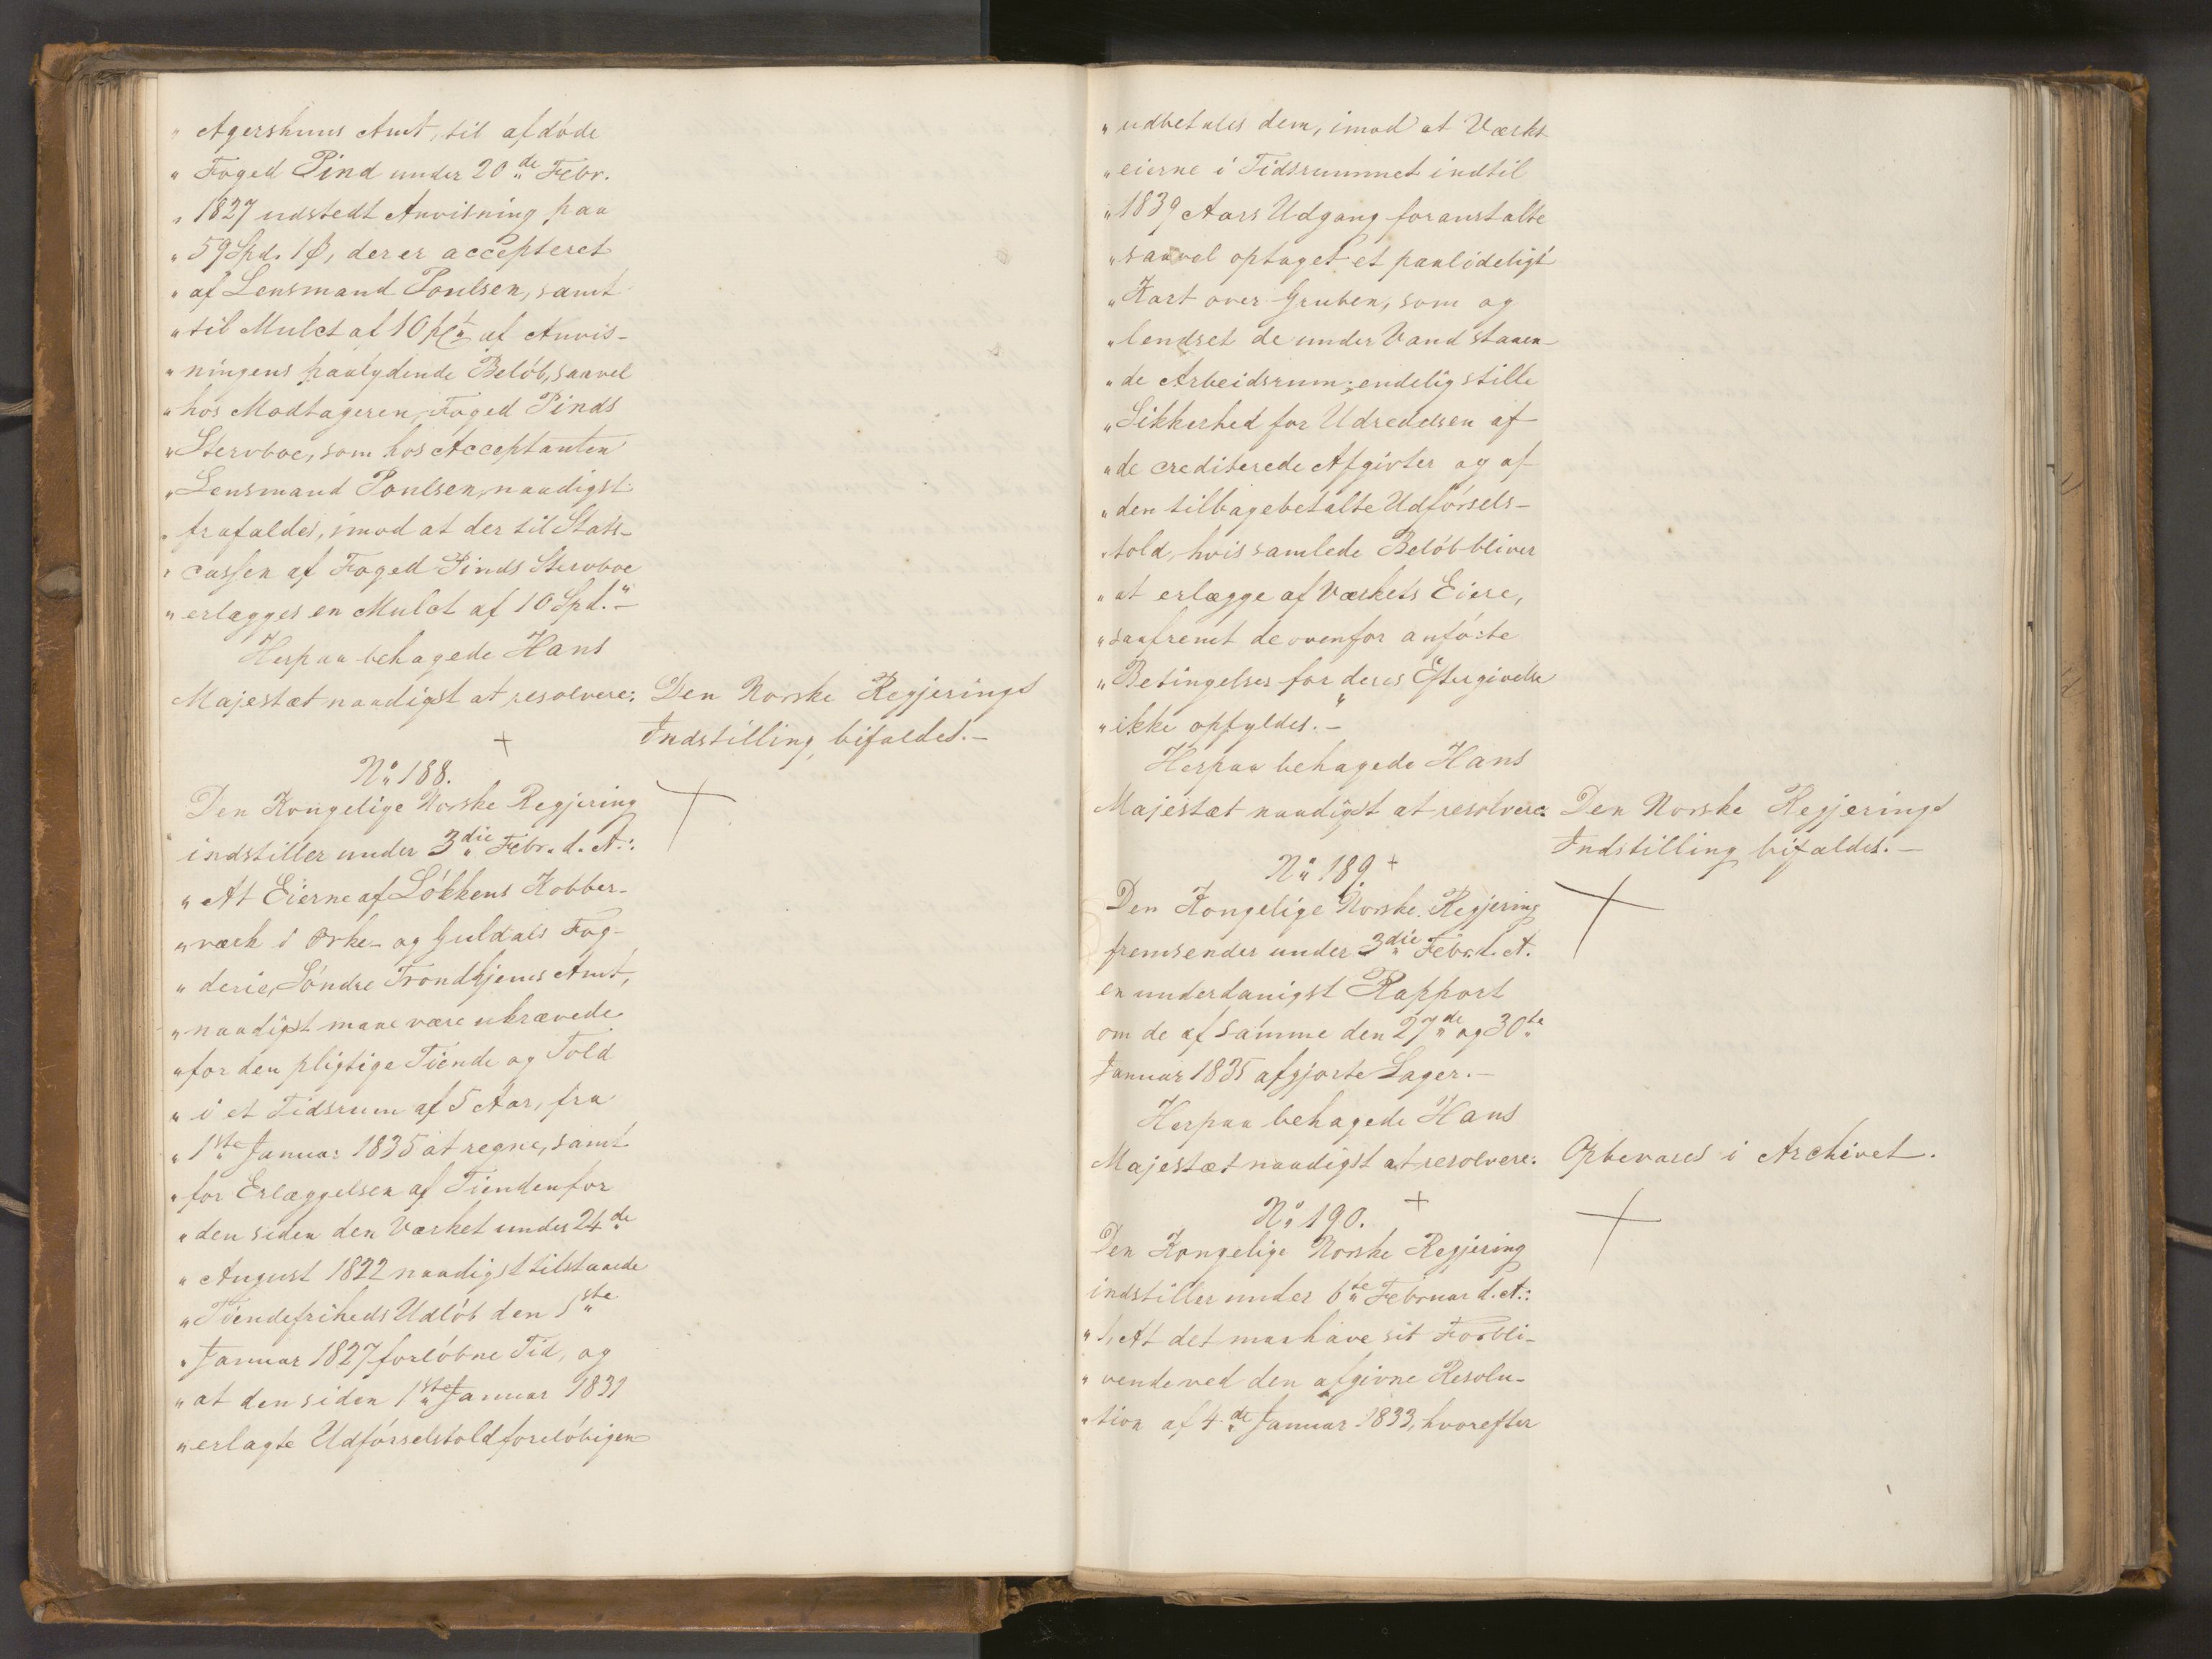 " Agershuus Amt, til afdöde
" Foged Pind under 20de Febr.
" 1827 udstedt Anvisning paa
" 59 Spd. 1 β, der er accepteret
" af Lensmand Poulsen, samt
" til Mulct af 10 pCt af Anvis-
" ningens paalydende Belöb, saavel
" hos Modtageren, Foged Pinds
" Stervboe, som hos Acceptanten
" Lensmand Poulsen, naadigst
" frafaldes, imod at der til Stats-
" cassen af Foged Pinds Stervboe
" erlægges en Mulct af 10 Spd."-
Herpaa behagede Hans
Majestæt naadigst at resolvere: Den Norske Regjerings
Indstilling bifaldes.-
No 188.
Den Kongelige Norske Regjering
indstiller under 3die Febr. d. A.:
" At Eierne af Lökkens Kobber-
" værk i Orke- og Guldals Fog-
" derie, Söndre Trondhjems Amt,
" naadigst maae være ukrævede
" for den pligtige Tiende og Told
" i et Tidsrum af 5 Aar, fra
" 1ste Januar 1835 at regne, samt
" for Erlæggelsen af Tienden for
" den siden den Værket under 24de
" August 1822 naadigst tilstaaede
" Tiendefriheds Udlöb den 1ste
" Januar 1827 forlöbne Tid, og
" at den siden 1ste Januar 1831
" erlagte Udförselstold foreløbigen
" udbetales dem, imod at Værks-
" eierne i Tidsrummet indtil
" 1839 Aars Udgang foranstalte
" saavel optaget et paalideligt
" Kart over Gruben, som og
" lendset de under Vand staaen-
" de Arbeidsrum; endelig stille
" Sikkerhed for Udredelsen af
" de crediterede Afgivter og af
" den tilbagebetalte Udförsels-
" told, hvis samlede Belöb bliver
" at erlægge af Værkets Eiere,
" saafremt de ovenfor anförte
" Betingelser for deres Eftergivelse
" ikke opfyldes."-
Herpaa behagede Hans
Majestæt naadigst at resolvere: Den Norske Regjerings
Indstilling bifaldes.-
No 189.
Den Kongelige Norske Regjering
fremsender under 3die Febr. d. A.
en underdanigst Rapport
om de af samme den 27de og 30te
Januar 1835 afgjorte Sager.-
Herpaa behagede Hans
Majestæt naadigst at resolvere: Opbevares i Archivet.
No 190.
Den Kongelige Norske Regjering
indstiller under 6te Februar d. A.:
" 1, At det maa have sit Forbli-
" vende ved den afgivne Resolu-
" tion af 4de Januar 1833, hvorefter